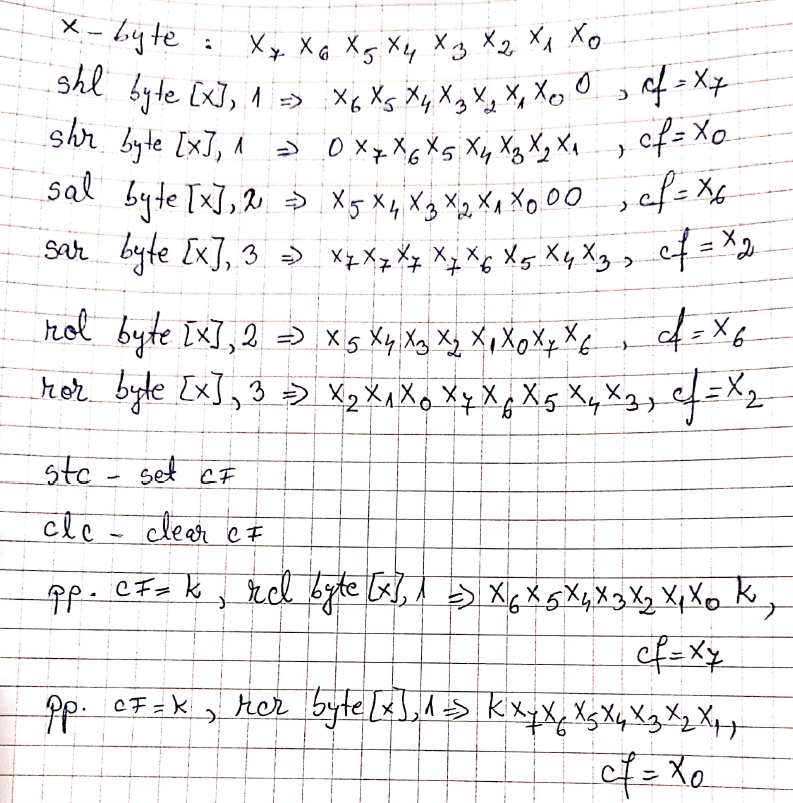 x - byte : x₇ x₆ x₅ x₄ x₃ x₂ x₁ x₀
shl byte [x], 1 ⇒ x₆ x₅ x₄ x₃ x₂ x₁ x₀ 0 , cf = x₇
shr byte [x], 1 ⇒ 0 x₇ x₆ x₅ x₄ x₃ x₂ x₁ , cf = x₀
sal byte [x], 2 ⇒ x₅ x₄ x₃ x₂ x₁ x₀ 0 0 , cf = x₆
sar byte [x], 3 ⇒ x₇ x₇ x₇ x₇ x₆ x₅ x₄ x₃ , cf = x₂
rol byte [x], 2 ⇒ x₅ x₄ x₃ x₂ x₁ x₀ x₇ x₆ , cf = x₆
ror byte [x], 3 ⇒ x₂ x₁ x₀ x₇ x₆ x₅ x₄ x₃ , cf = x₂
stc - set CF
clc - clear CF
pp. CF = k , rcl byte [x], 1 ⇒ x₆ x₅ x₄ x₃ x₂ x₁ x₀ k ,
cf = x₇
pp. CF = k , rcr byte [x], 1 ⇒ k x₇ x₆ x₅ x₄ x₃ x₂ x₁ ,
cf = x₀